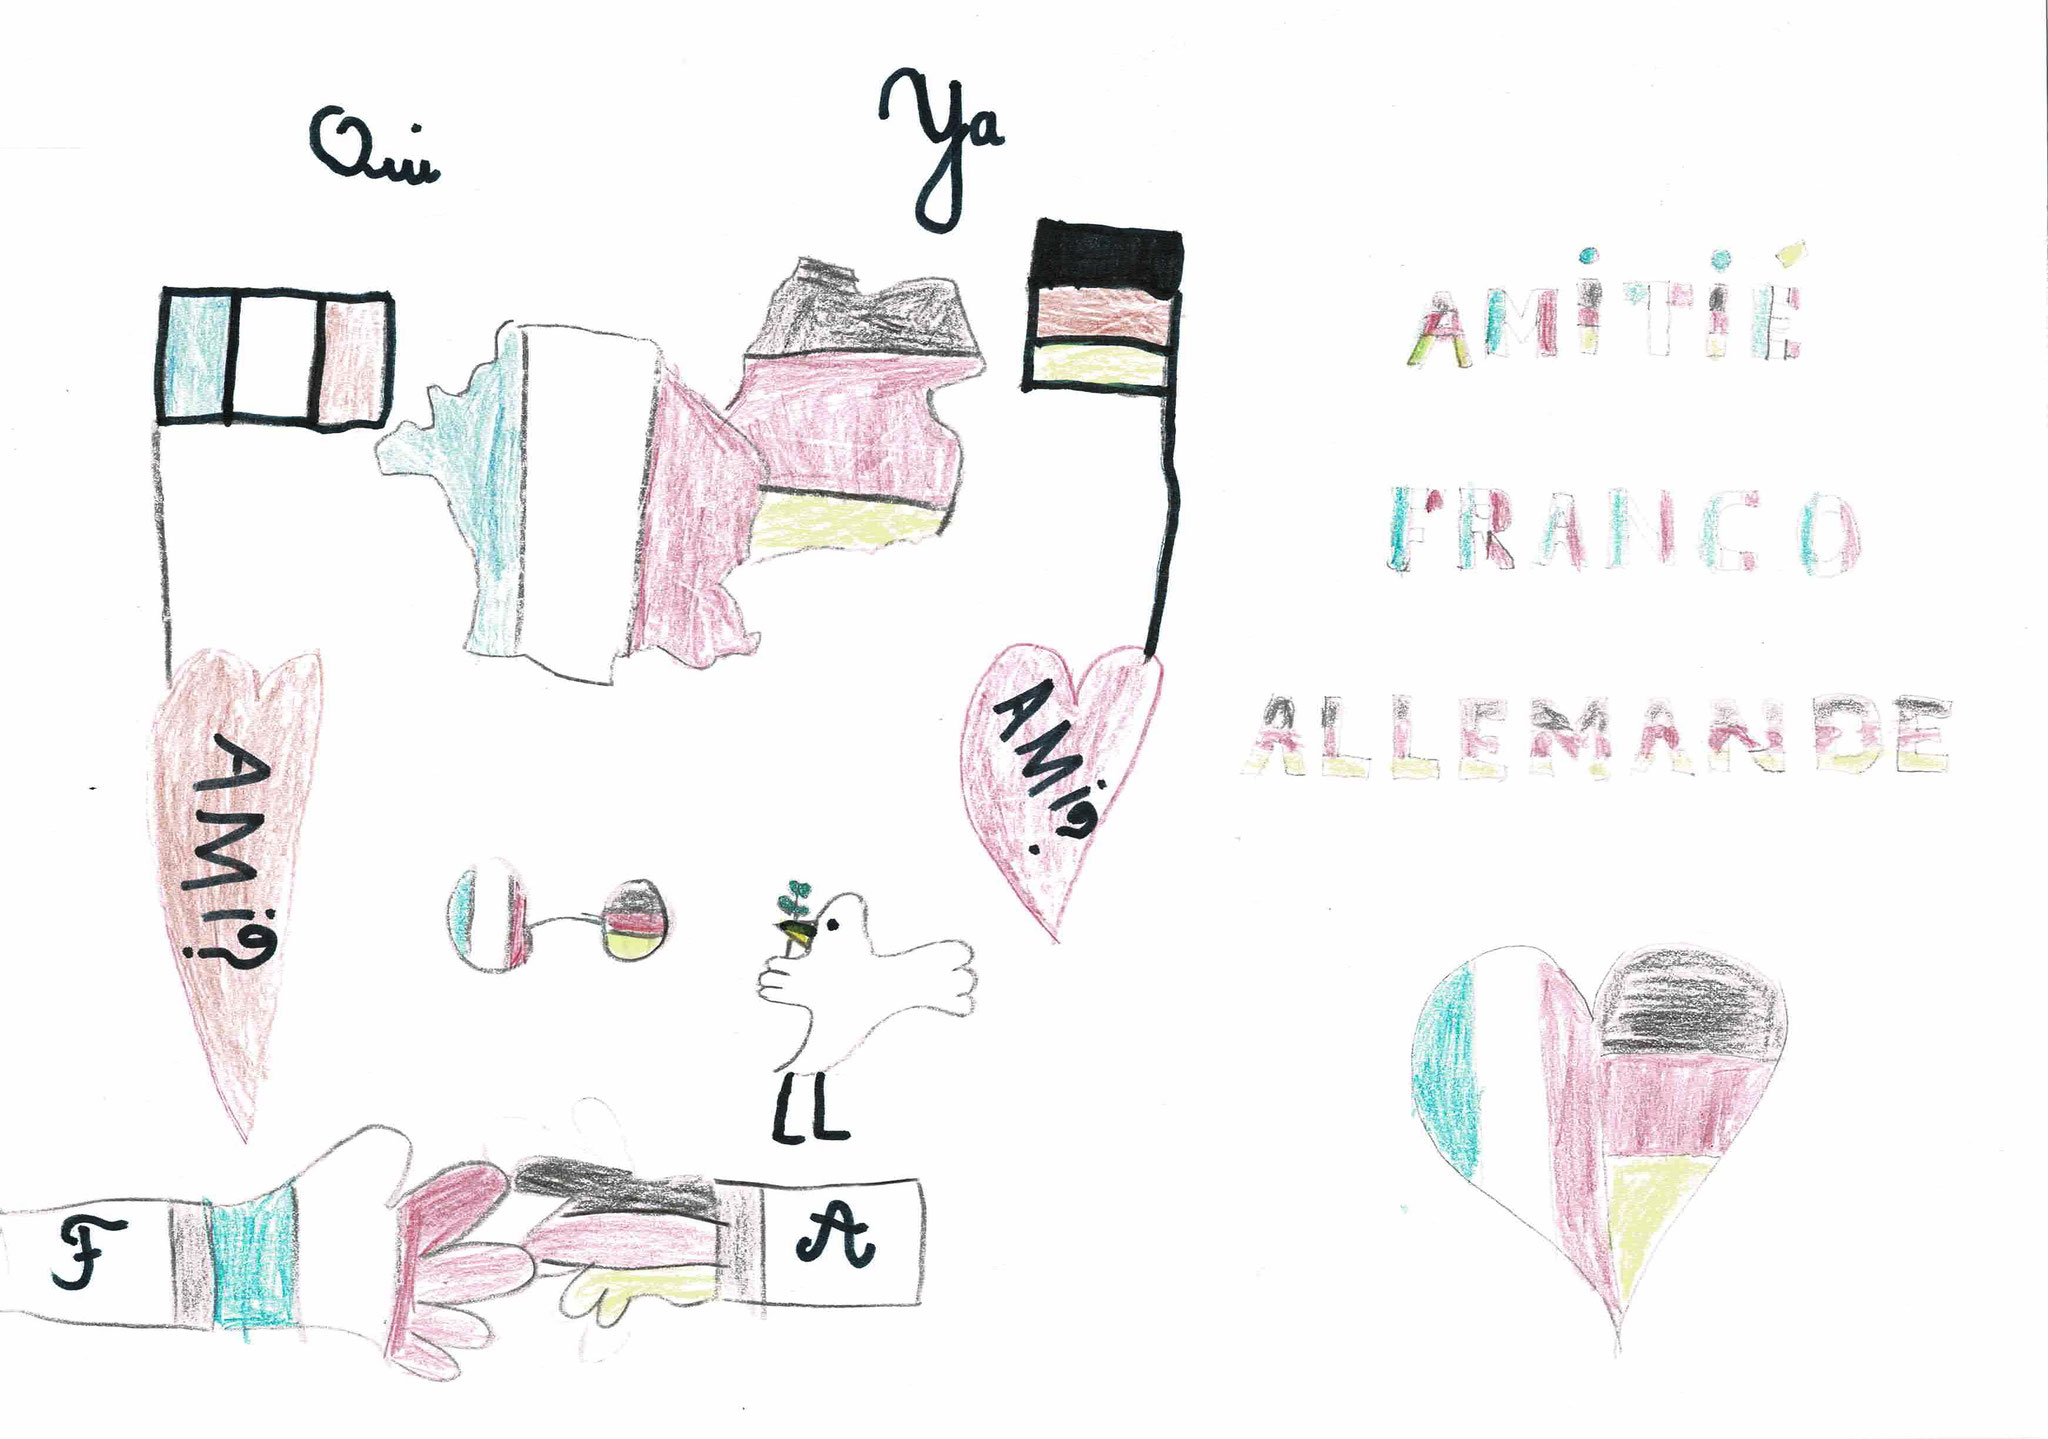 Oui
Ya
AMITIÉ
FRANCO
ALLEMANDE
AMi?
AMi?
F
A